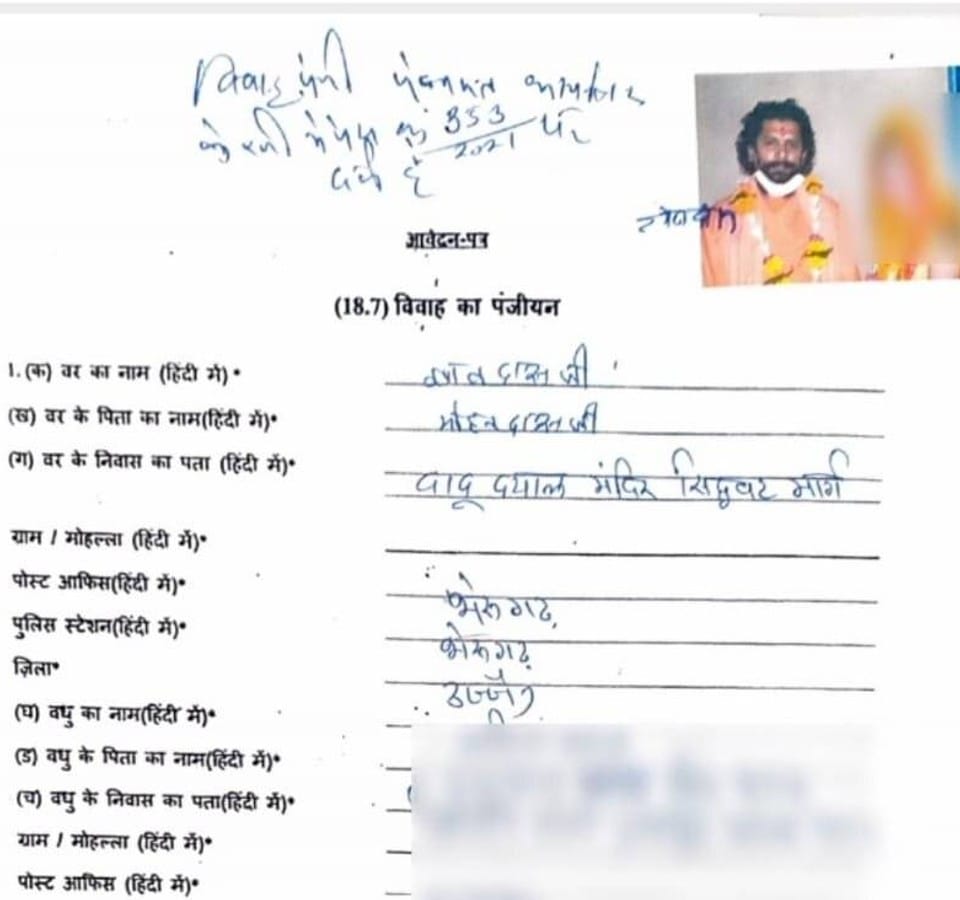 विवाह पंजी
353/2021 पर
दर्ज है
आवेदन-पत्र
(18.7) विवाह का पंजीयन
1. (क) वर का नाम (हिंदी में)*
(ख) वर के पिता का नाम(हिंदी में)* मोहनदासजी
(ग) वर के निवास का पता (हिंदी में)* दादू दयाल मंदिर सिद्धवट मार्ग
ग्राम / मोहल्ला (हिंदी में)*
पोस्ट आफिस(हिंदी में)* भेरूगढ़
पुलिस स्टेशन(हिंदी में)* भेरूगढ़
ज़िला* उज्जैन
(घ) वधु का नाम(हिंदी में)*
(ड) वधु के पिता का नाम(हिंदी में)*
(च) वधु के निवास का पता(हिंदी में)*
ग्राम / मोहल्ला (हिंदी में)*
पोस्ट आफिस (हिंदी में)*